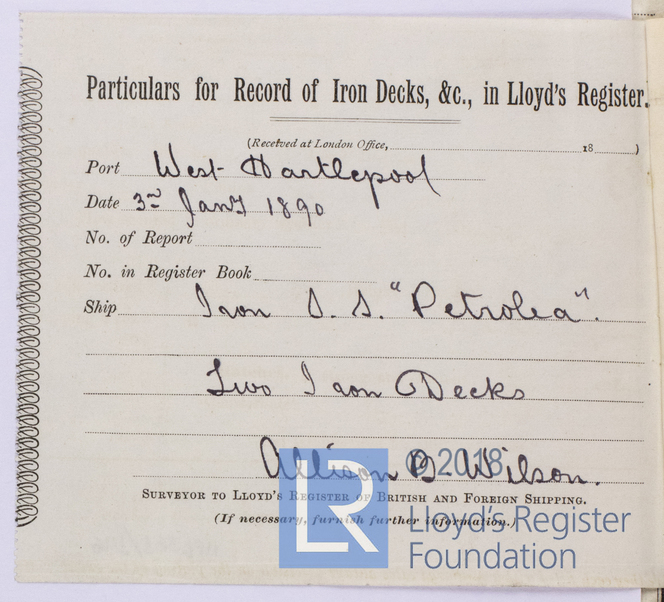 Particulars for Record of Iron Decks, &c., in Lloyd's Register.
(Received at London Office, 18 )
Port West Hartlepool
Date 3rd Jany 1890
No. of Report
No. in Register Book
Ship Iron S. S. "Petrolea".
Two Iron Decks
Allison B Wilson.
© 2018
SURVEYOR TO LLOYD'S REGISTER OF BRITISH AND FOREIGN SHIPPING.
(If necessary, furnish further information.)
LR
Lloyd's Register
Foundation